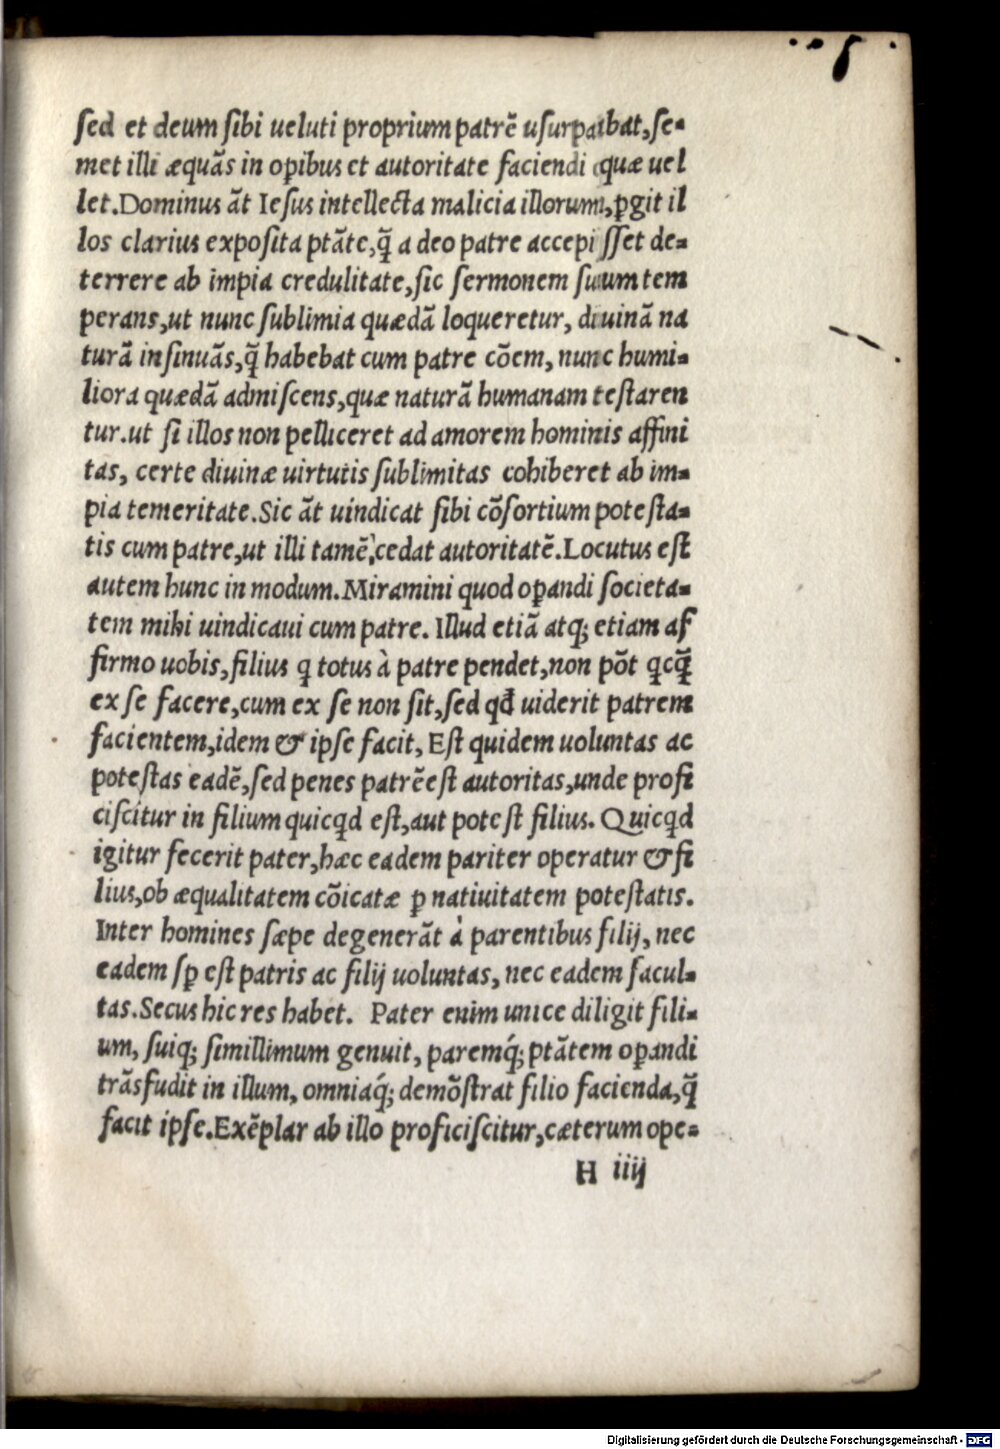 sed et deum sibi ueluti proprium patrẽ usurpabat, se-
met illi æquãs in opibus et autoritate faciendi quæ uel
let. Dominus āt Iesus intellecta malicia illorum, ꝑgit il
los clarius exposita ptãte, q̃ a deo patre accepisset de-
terrere ab impia credulitate, sic sermonem suum tem
perans, ut nunc sublimia quædã loqueretur, diuinã na
turã insinuãs, q̃ habebat cum patre cõem, nunc humi-
liora quædã admiscens, quæ naturã humanam testaren
tur. ut si illos non pelliceret ad amorem hominis affini
tas, certe diuinæ uirtutis sublimitas cohiberet ab im-
pia temeritate. Sic āt uindicat sibi cõsortium potesta-
tis cum patre, ut illi tamẽ, cedat autoritatẽ. Locutus est
autem hunc in modum. Miramini quod oꝑandi societa-
tem mihi uindicaui cum patre. Illud etiã atq; etiam af
firmo uobis, filius q totus à patre pendet, non põt qcq̃
ex se facere, cum ex se non sit, sed qđ uiderit patrem
facientem, idem & ipse facit, Est quidem uoluntas ac
potestas eadẽ, sed penes patrẽ est autoritas, unde profi
ciscitur in filium quicqd est, aut potest filius. Quicqd
igitur fecerit pater, hæc eadem pariter operatur & fi
lius, ob æqualitatem cõicatæ ꝑ natiuitatem potestatis.
Inter homines sæpe degenerãt à parentibus filij, nec
eadem sꝑ est patris ac filij uoluntas, nec eadem facul-
tas. Secus hic res habet. Pater enim unice diligit fili-
um, suiq; simillimum genuit, paremq́; ptãtem oꝑandi
trãsfudit in illum, omniaq́; demõstrat filio facienda, q̃
facit ipse. Exẽplar ab illo proficiscitur, cæterum ope-
H iiij
Digitalisierung gefördert durch die Deutsche Forschungsgemeinschaft - DFG